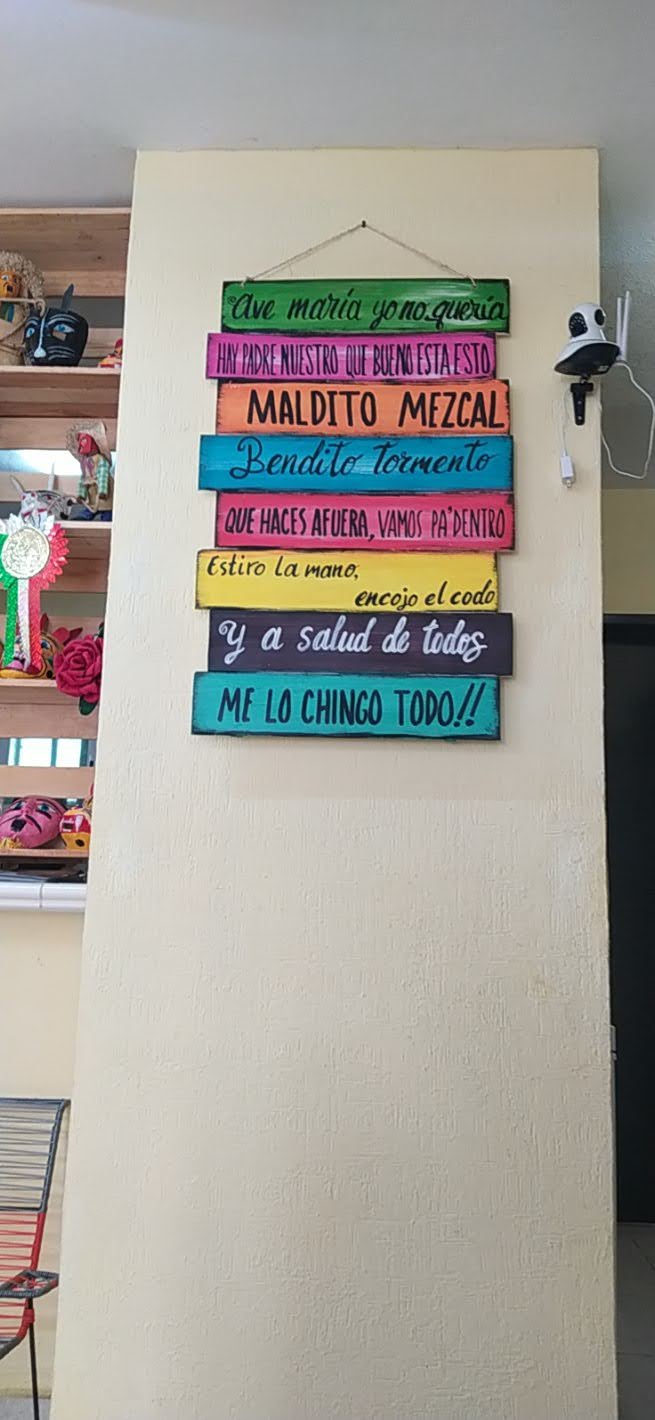 Ave maría yo no quería
HAY PADRE NUESTRO QUE BUENO ESTA ESTO
MALDITO MEZCAL
Bendito tormento
QUE HACES AFUERA, VAMOS PA'DENTRO
Estiro la mano,
encojo el codo
Y a salud de todos
ME LO CHINGO TODO!!